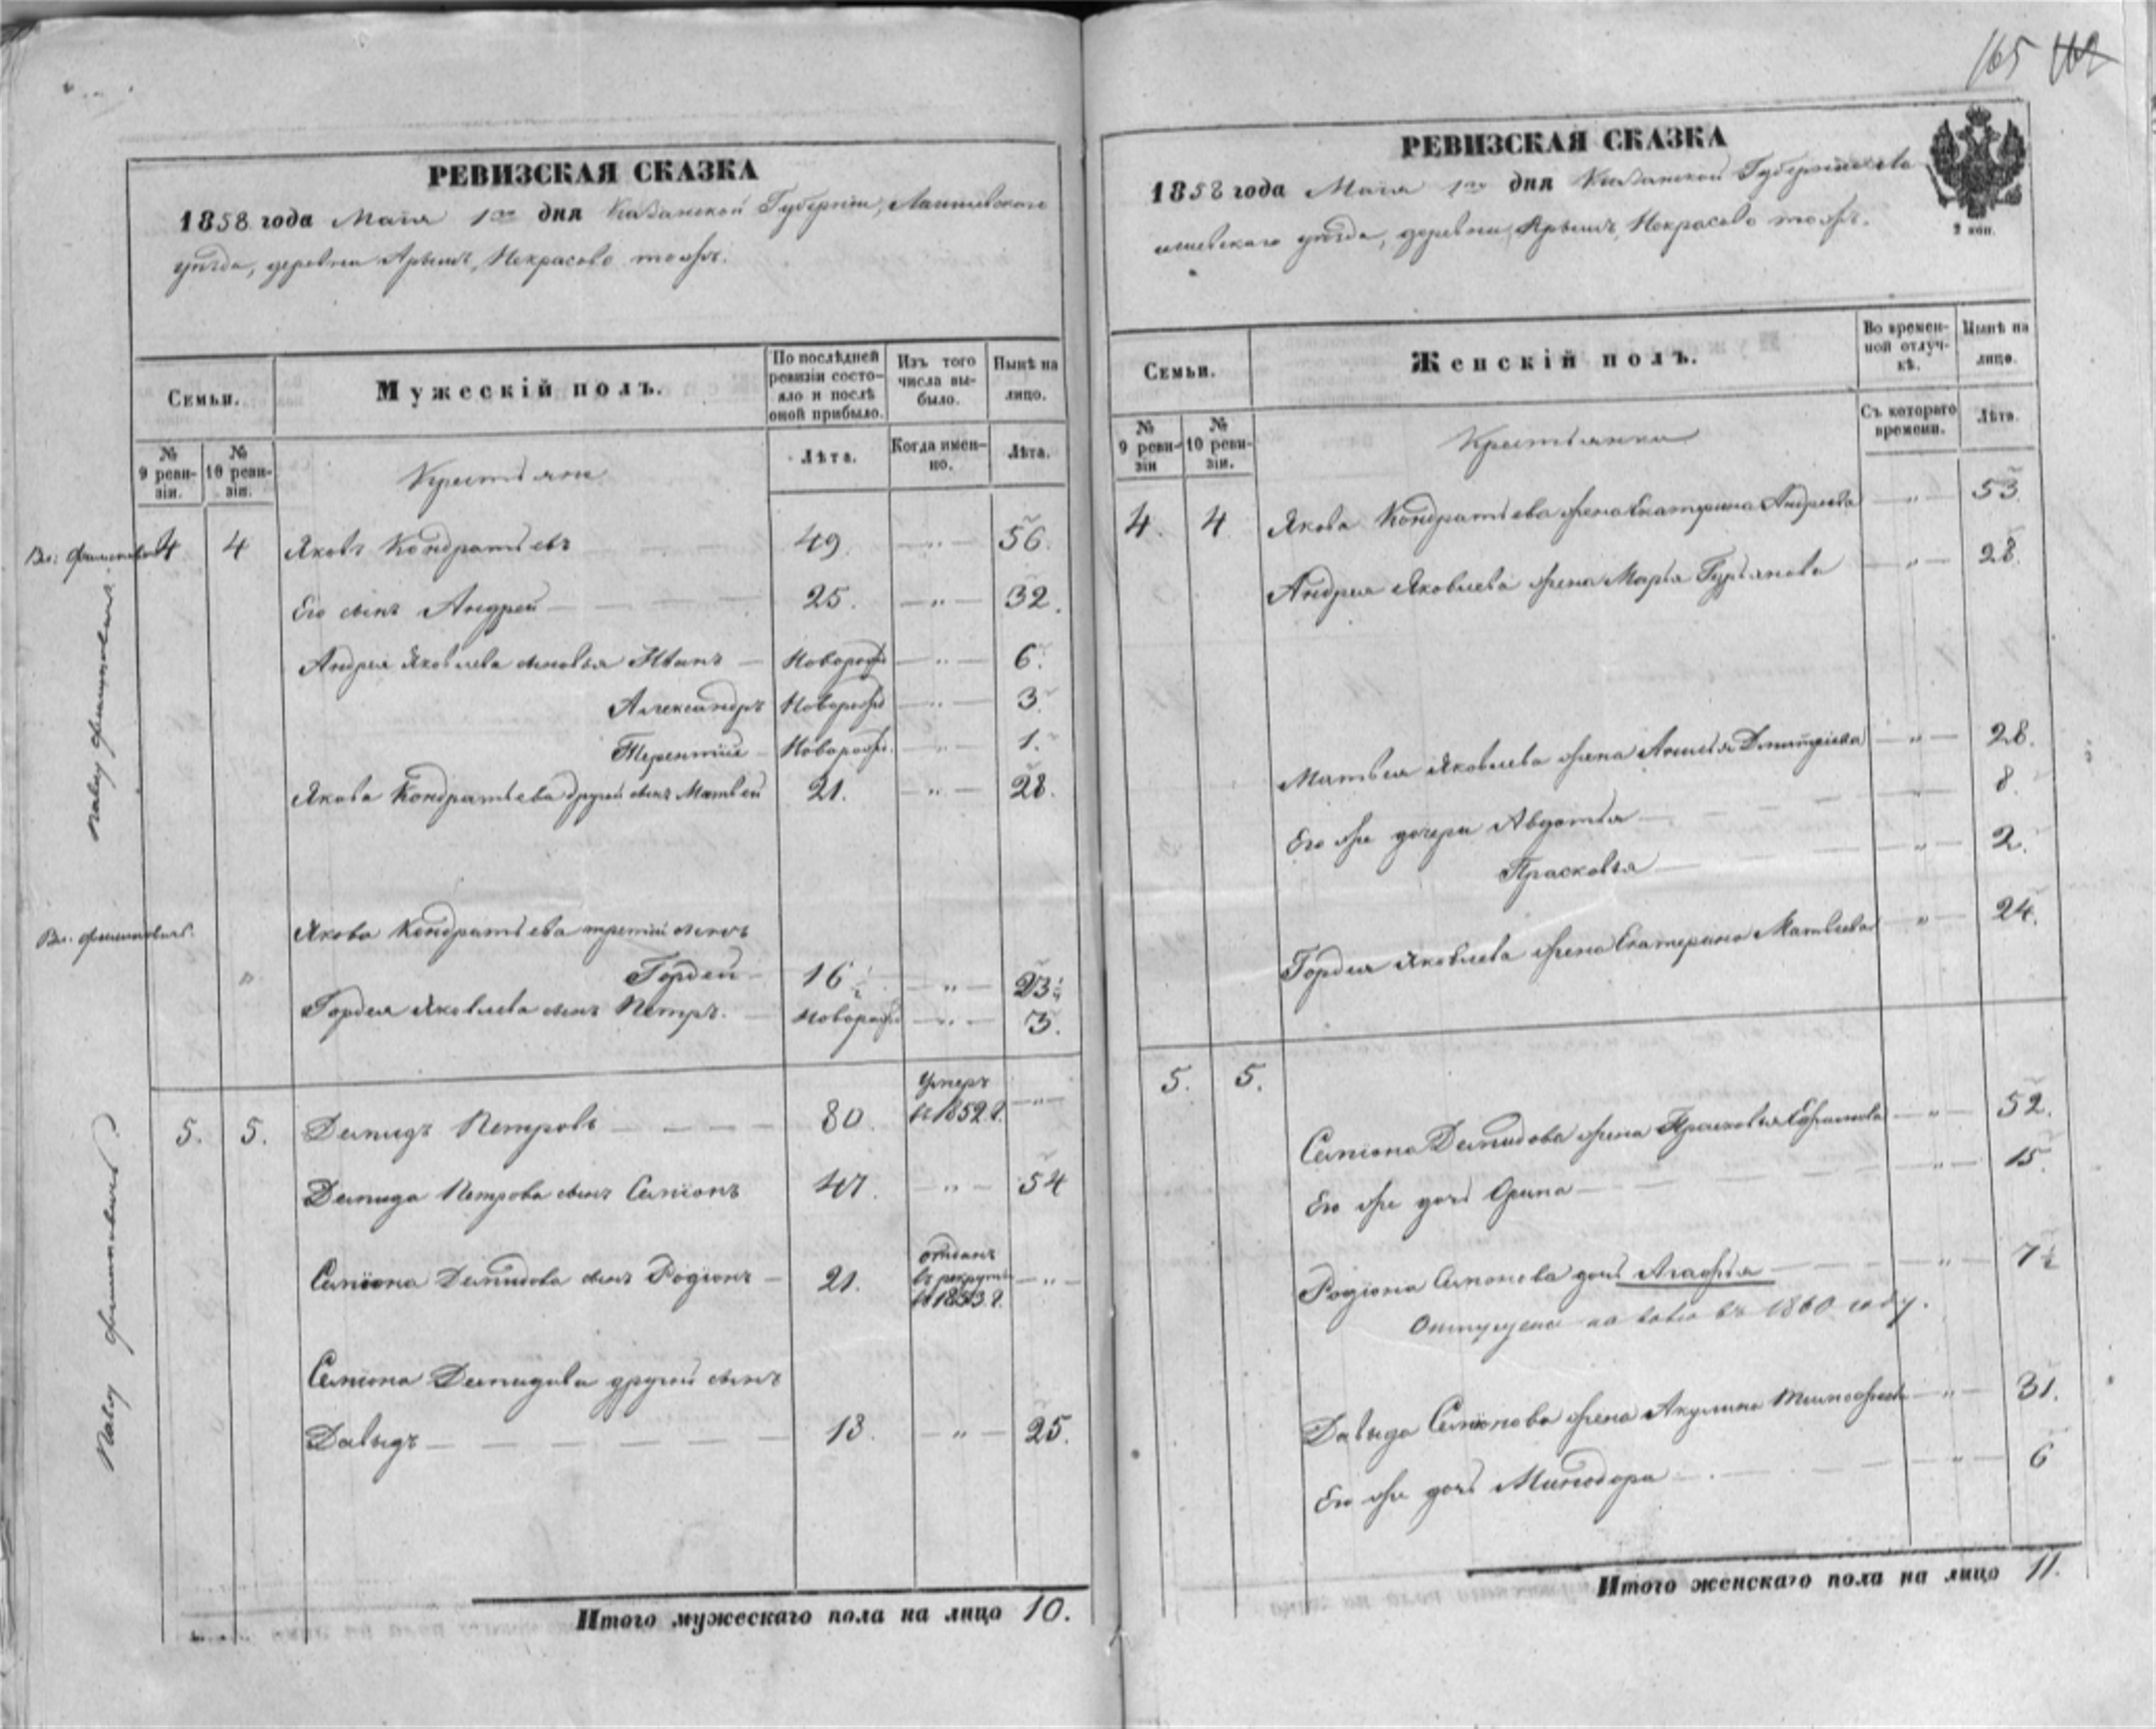 165 162
РЕВИЗСКАЯ СКАЗКА
1858 года Маія 1го дня Казанской Губерніи, Лаишевскаго
уѣзда, деревни Арышъ, Некрасово тожъ.
Семьи.
Мужескій полъ.
По послѣдней ревизіи состояло и послѣ оной прибыло.
Изъ того числа выбыло.
Нынѣ на лицо.
№ 9 ревизіи.
№ 10 ревизіи.
Крестьяне
Лѣта.
Когда именно.
Лѣта.
4 4 Яковъ Кондратьевъ 49. — „ — 56.
Его сынъ Андрей — 25. — „ — 32.
Андрея Яковлева сыновья Иванъ — Новорожд — „ — 6.
Александръ Новорожд — „ — 3.
Терентій — Новорожд. — „ — 1.
Якова Кондратьева другой сынъ Матвей 21. — „ — 28.
Якова Кондратьева третій сынъ
„ Гордей — 16½ — „ — 23½
Гордея Яковлева сынъ Петръ. Новорожд — „ — 3.
5. 5. Демидъ Петровъ — 80. Умеръ въ 1852 г. — „ —
Демида Петрова сынъ Семіонъ 47. — „ — 54
Семіона Демидова сынъ Родіонъ — 21. отданъ въ рекруты въ 1853 г. — „ —
Семіона Демидова другой сынъ
Давыдъ — 18. — „ — 25.
Итого мужескаго пола на лицо 10.
РЕВИЗСКАЯ СКАЗКА
1858 года Маія 1го дня Казанской Губерніи Ла
ишевскаго уѣзда, деревни Арышъ, Некрасово тожъ.
2 коп.
Семьи.
Женскій полъ.
Во временной отлучкѣ.
Нынѣ на лицо.
№ 9 ревизіи
№ 10 ревизіи.
Крестьянки
Съ котораго времени.
Лѣта.
4. 4 Якова Кондратьева жена Екатерина Андреева — „ — 53.
Андрея Яковлева жена Марья Гурьянова — „ — 28.
Матвея Яковлева жена Дмитріева — „ — 28.
Его же дочери Авдотья — „ — 8.
Прасковья — „ — 2.
Гордея Яковлева жена Екатерина Матвеева — „ — 24.
5. 5.
Семіона Демидова жена Прасковья Ефимова — „ — 52.
Его же дочь Орина — „ — 15.
Родіона Семіонова дочь Агафья — „ — 7½
Отпущена на волю въ 1860 году.
Давыда Семіонова жена Акулина Тимофеева — „ — 31.
Его же дочь Минодора — „ — 6
Итого женскаго пола на лицо 11.